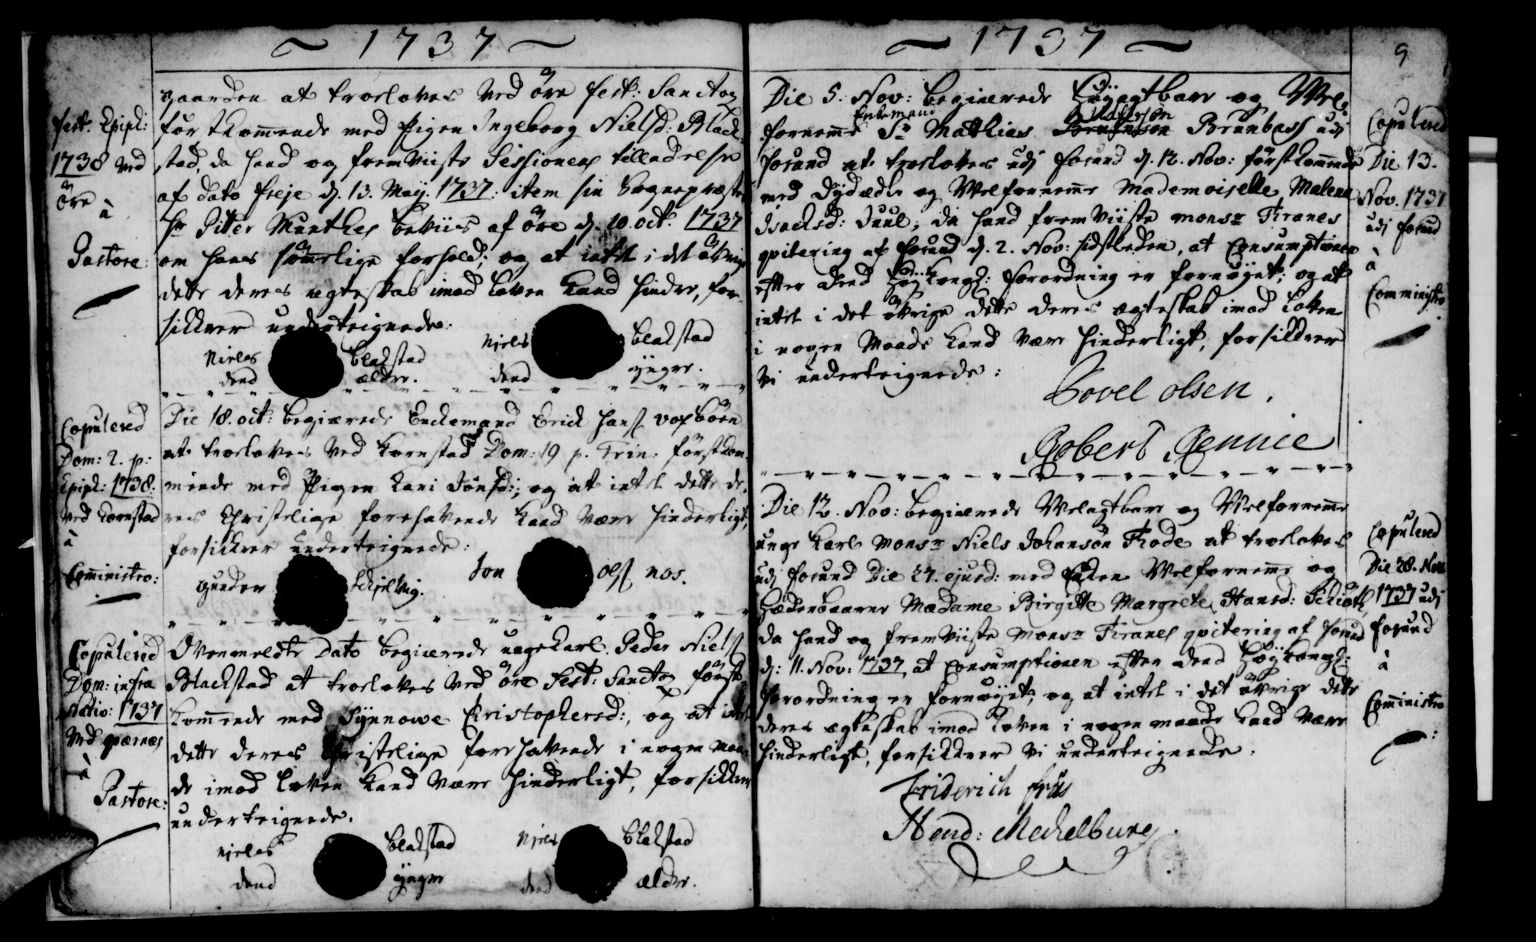 ~ 1737 ~
gaarden at troeloves ved Öre fest: Sanctor
fest. Epiph:
1738 ved
Öre
à
Pastore:
förstkommende med Pigen Ingeborg Nielsd: Black
stad, da hand og fremviiste Sessionens tilladelse
af dato Freje d. 13. Maij. 1737: item sin Sognepræstes
Hr Piter Munthes beviis af Öre d. 10. oct: 1737
om hans skriftlige forhold; og at intet i det övrige
dette deres egteskab imod Loven kand hindre, for-
sikkrer underteignede:
Nieles blakstad
dend ælder.
Njels blakstad
dend yngre.
Copulered
Dom: 2. p:
Epiph: 1738.
ved Kornstad
à
Comministro:
Die 18. oct: begiærede Enckemand Erick Hans
at troeloves ved Kornstad Dom: 19 p. Trin: förstkom-
mende med Pigen Kari Jonsd:, og at intet dette de-
res Christelige forehavende kand være hinderligt,
forsikkrer underteignede:
gunder
Jon Ols nos.
Copulered
Dom: infra
Nativ: 1737
ved qværnæs
à
Pastore:
Ovenmeldte Dato begiærede ungekarl Peder Niels
Blackstad at troeloves ved Öre Fest: Sanctor först
kommende med Synnowe Christophersd:, og at intet
dette deres Christelige forehavende i nogen maa-
de imod Loven kand være hinderligt, forsikkrer
underteignede.
Njeles blakstad
dend yngre
Njels blakstad
dend ælder.
~ 1737 ~
9
Die 5. Nov: begiærede Höyagtbare og Vel-
Enkemand
fornemme Sr Matthias Brunbass udj
Fosund at troeloves udj Fosund d. 12. Nov: förstkommende
med Dydædle og Velfornemme Mademoiselle Malene
Isachsd: Juul, da hand fremviiste monsr Tranes
qvitering af Fosund d. 2. Nov: sidstleden, at Consumptionen
efter dend Höykongl: forordning er fornöyet; og at
intet i det övrige dette deres ægteskab imod Loven
i nogen Maade kand være hinderligt, forsikkrer
vi underteignede:
Povel Olsen.
Robert Rennie
Copulered
Die 13.
Nov. 1737
udj Fosund
à
Comministro
Die 12. Nov: begiærede Velagtbare og Velfornemme
unge Karl Monsr Niels Johansön Thode at troeloves
udj Fosund Die 27. ejusd: med Enken Velfornemme og
Hæderbaarne Madame Birgitte Margrete Hansd:
da hand og fremviiste Monsr Tranes qvitering af Fosund
d: 11. Nov: 1737, at Consumptionen efter dend Höykongl:
forordning er fornöyet, og at intet i det övrige dette
deres ægteskab imod Loven i nogen maade kand være
hinderligt, forsikkrer vi underteignede:
Friderich friis
Hend: Mechelburg.
Copulered
Die 28. Nov:
1737 udj
Fosund
à
Comministro: